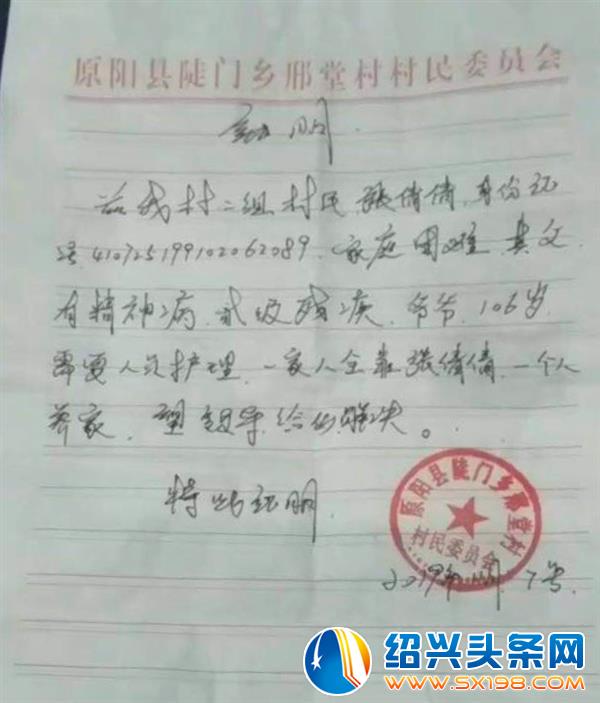 原阳县陡门乡邢堂村村民委员会
证明
兹我村二组村民 張倩倩 身份证
号 410725199102062089. 家庭困难 其父
有精神病 贰级残疾. 爷爷 106岁
需要人员护理 一家人全靠張倩倩 一个人
养家. 望领导给似解决。
特此证明
原阳县陡门乡邢堂村
村民委员会
2019年 月 7号.
绍兴头条网
WWW.SX198.COM